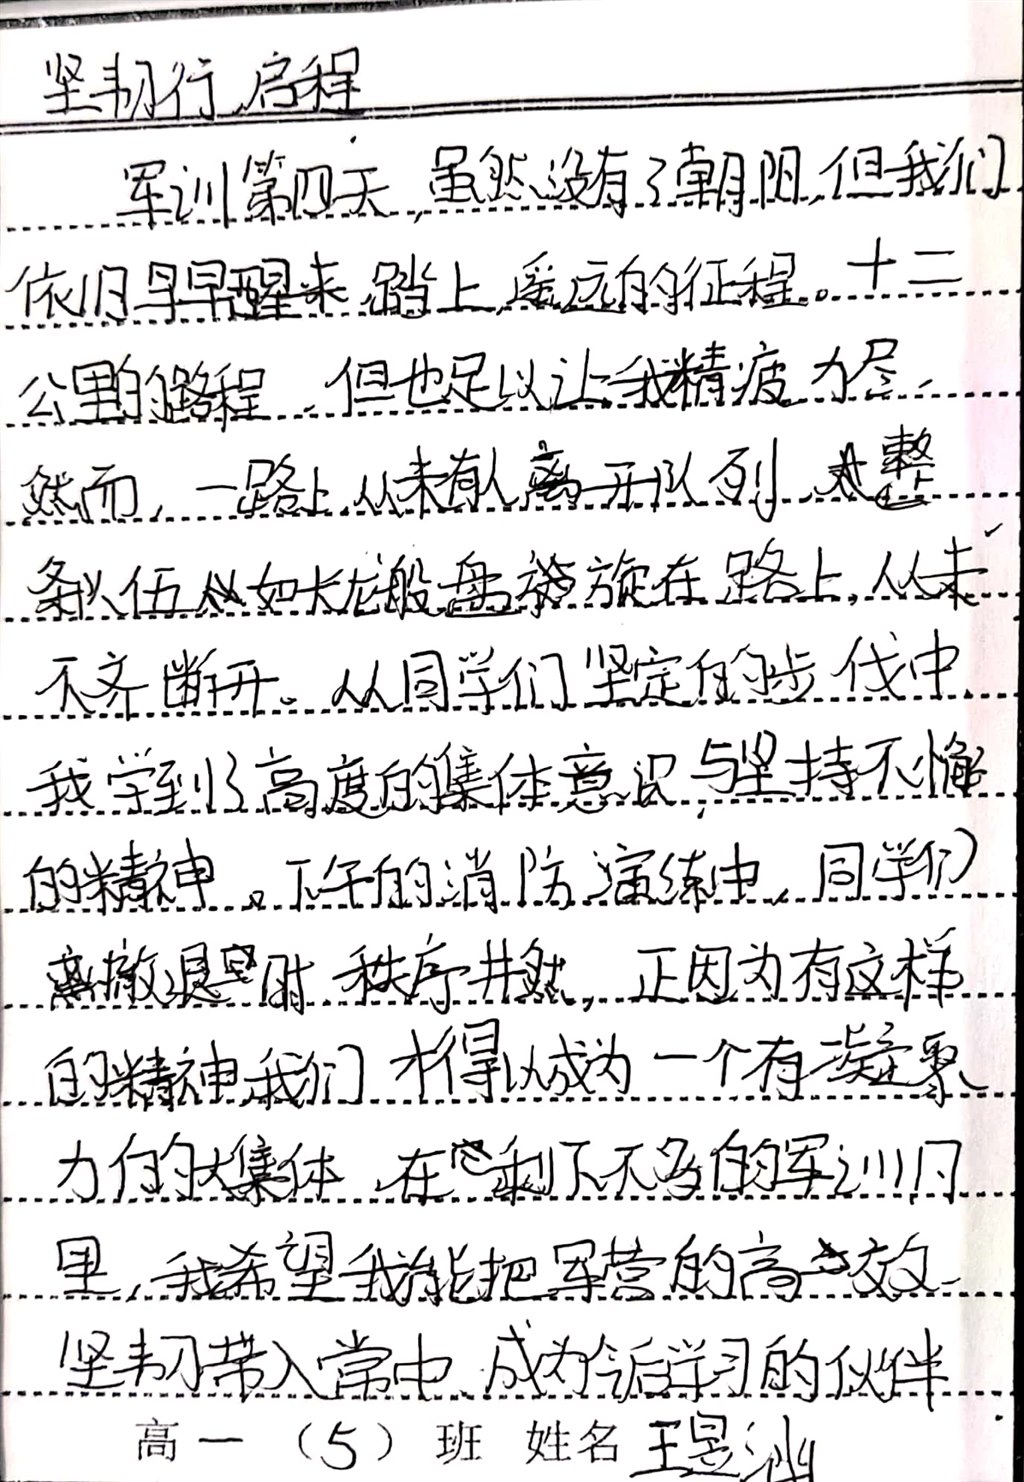 坚韧行,启程
军训第四天,虽然没有了朝阳,但我们
依旧早早醒来,踏上遥远的征程。十二
公里的路程,但也足以让我精疲力尽,
然而,一路上从未有人离开队列,整
条队伍如长龙般盘旋在路上,从未
断开。从同学们坚定的步伐中,
我学到了高度的集体意识,与坚持不懈
的精神。下午的消防演练中,同学们
撤退时秩序井然,正因为有这样
的精神,我们才得以成为一个有凝聚
力的大集体,在剩下不多的军训日
里,我希望我能把军营的高效、
坚韧带入常中,成为今后学习的伙伴
高一(5)班 姓名 王昱